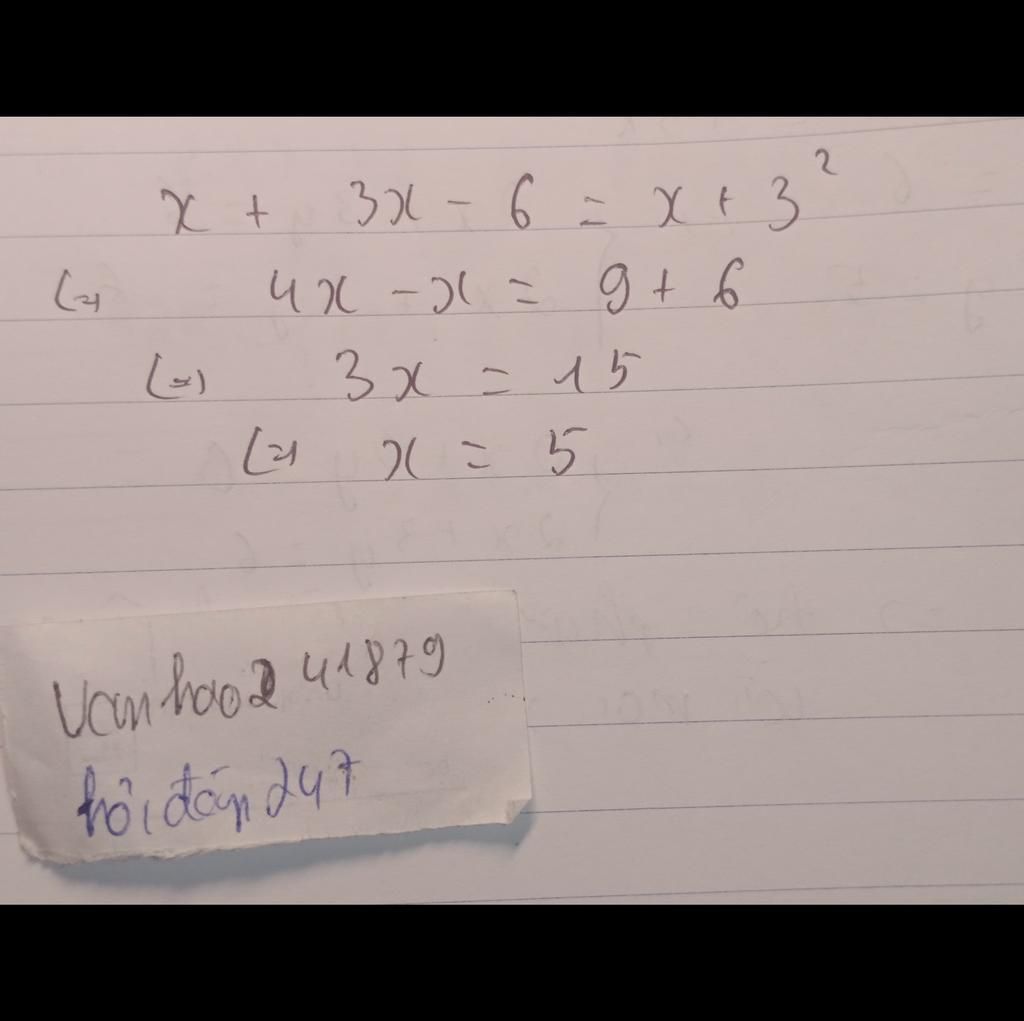 x + 3x - 6 = x + 3²
(=) 4x - x = 9 + 6
(=) 3x = 15
(=) x = 5
Vanhao2 41879
hỏi đáp 247